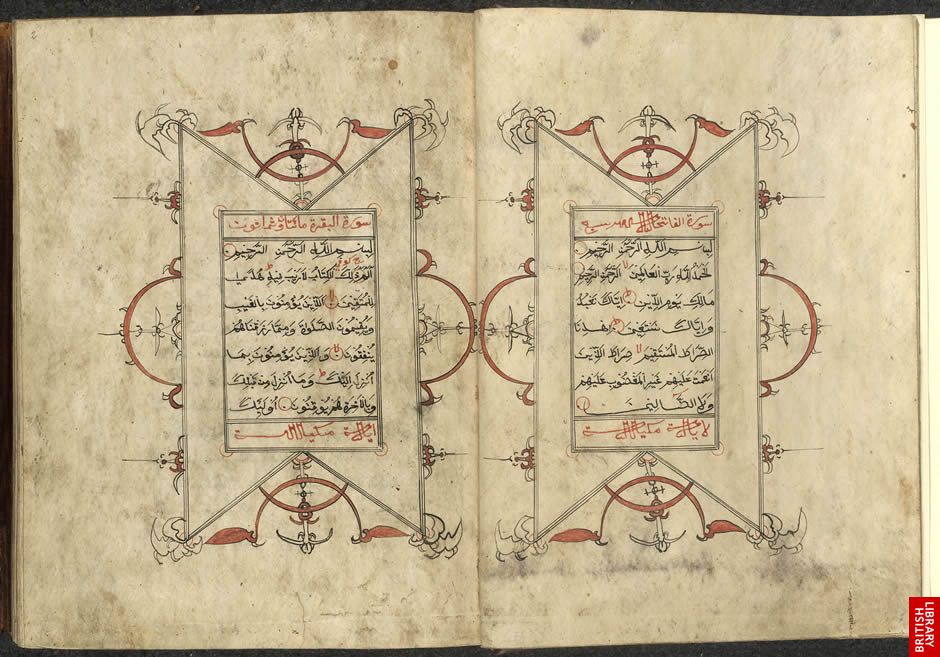 سورة الفاتحة
بسم الله الرحمن الرحيم
الحمد لله رب العالمين لا الرحمن الرحيم
مالك يوم الدين ط اياك نعبد
واياك نستعين ط اهدنا
الصراط المستقيم لا صراط الذين
انعمت عليهم غير المغضوب عليهم
ولا الضالين
2
سورة البقرة
بسم الله الرحمن الرحيم
الم ذلك الكتاب لا ريب فيه هدى
للمتقين لا الذين يؤمنون بالغيب
ويقيمون الصلوة ومما رزقناهم
ينفقون لا والذين يؤمنون بما
انزل اليك وما انزل من قبلك
وبالاخرة هم يوقنون اولئك
BRITISH
LIBRARY